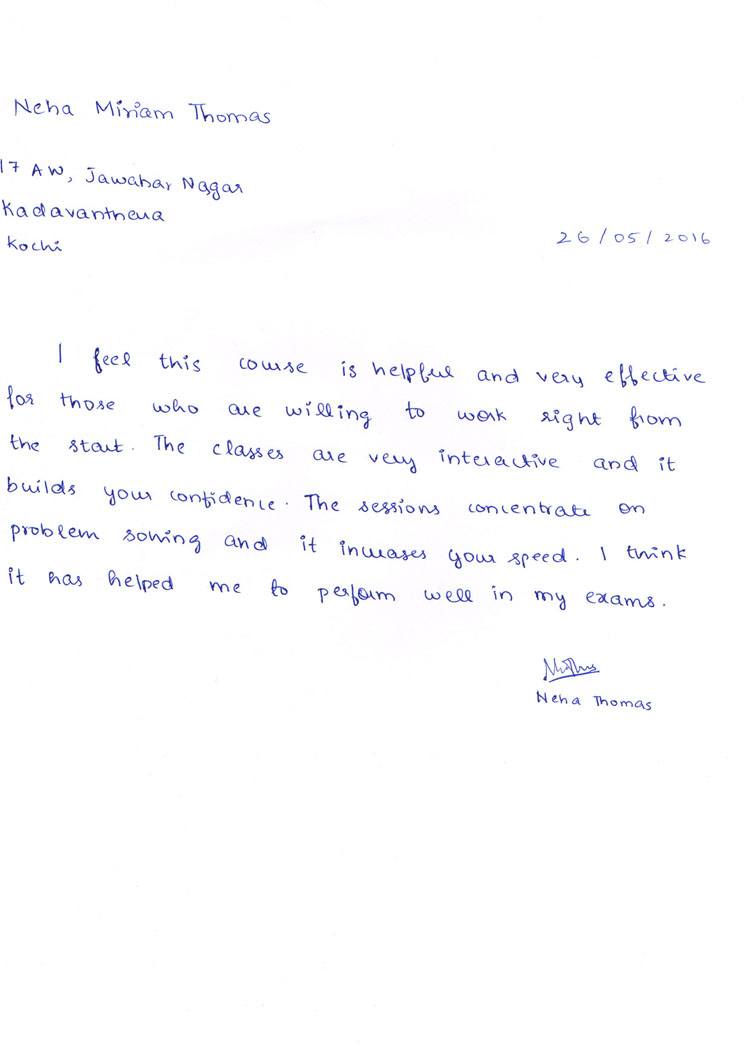 Neha Miriam Thomas
17 AW, Jawahar Nagar
Kadavanthera
Kochi
26/05/2016
I feel this course is helpful and very effective
for those who are willing to work right from
the start. The classes are very interactive and it
builds your confidence. The sessions concentrate on
problem solving and it increases your speed. I think
it has helped me to perform well in my exams.
Neha Thomas